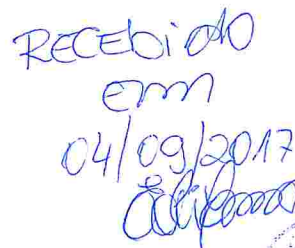 RECEBIDO
em
04/09/2017